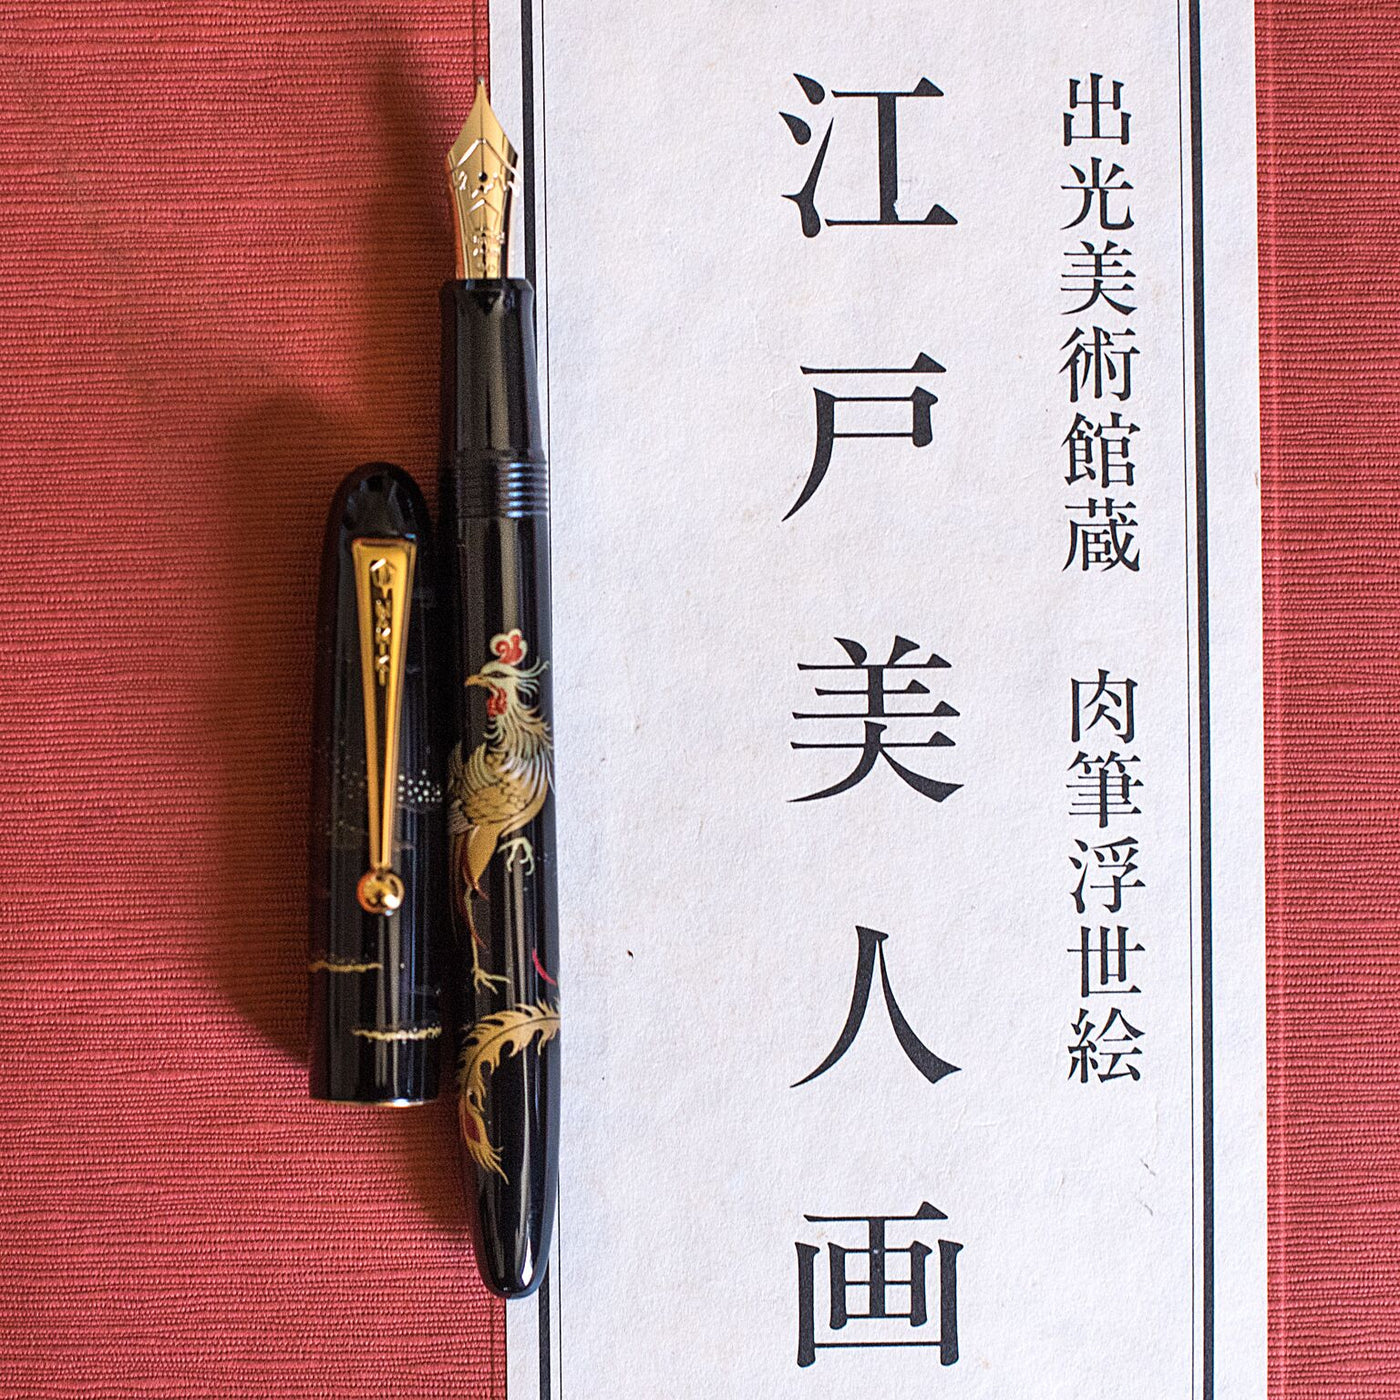 出光美術館蔵　肉筆浮世絵
江戸美人画